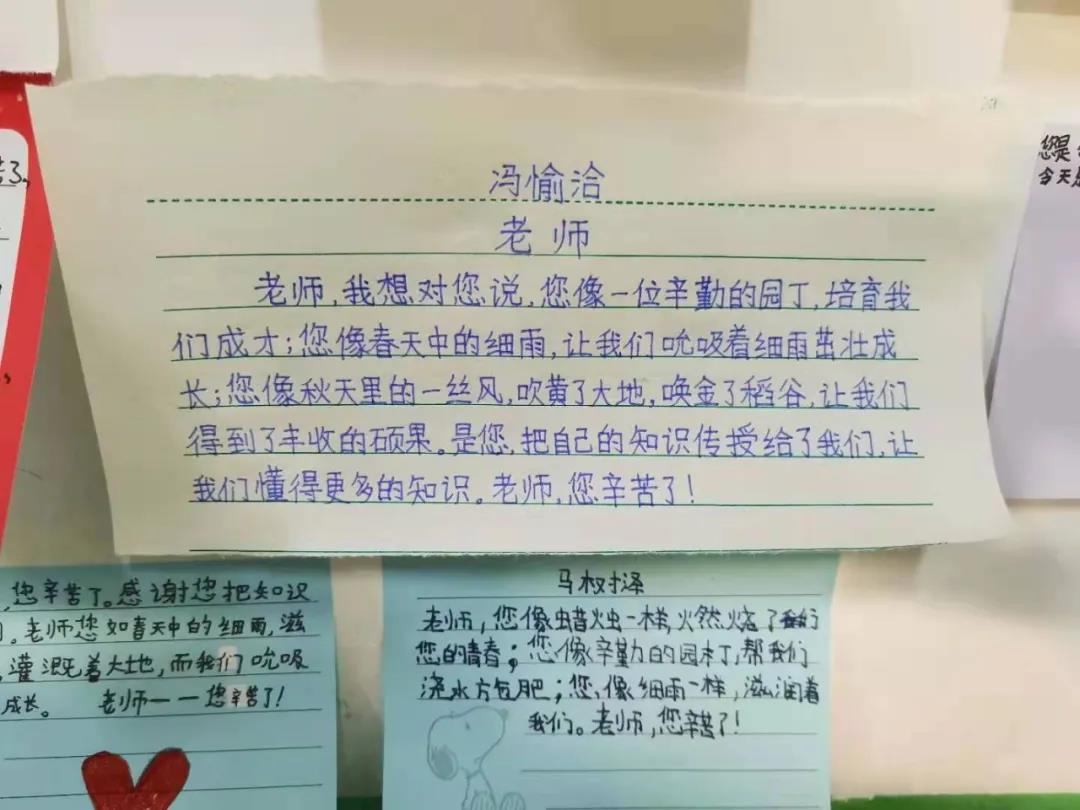 冯愉洽
老师
老师,我想对您说,您像一位辛勤的园丁,培育我
们成才;您像春天中的细雨,让我们吮吸着细雨茁壮成
长;您像秋天里的一丝风,吹黄了大地,唤金了稻谷,让我们
得到了丰收的硕果。是您,把自己的知识传授给了我们,让
我们懂得更多的知识。老师,您辛苦了!
苦了,
您是
今天是
,您辛苦了。感谢您把知识
。老师您如春天中的细雨,滋
,灌溉着大地,而我们吮吸
成长。 老师——您辛苦了!
马权择
老师,您像蜡烛一样,火然烧了
您的青春;您像辛勤的园丁,帮我们
浇水方包肥;您像细雨一样,滋润着
我们。老师,您辛苦了!